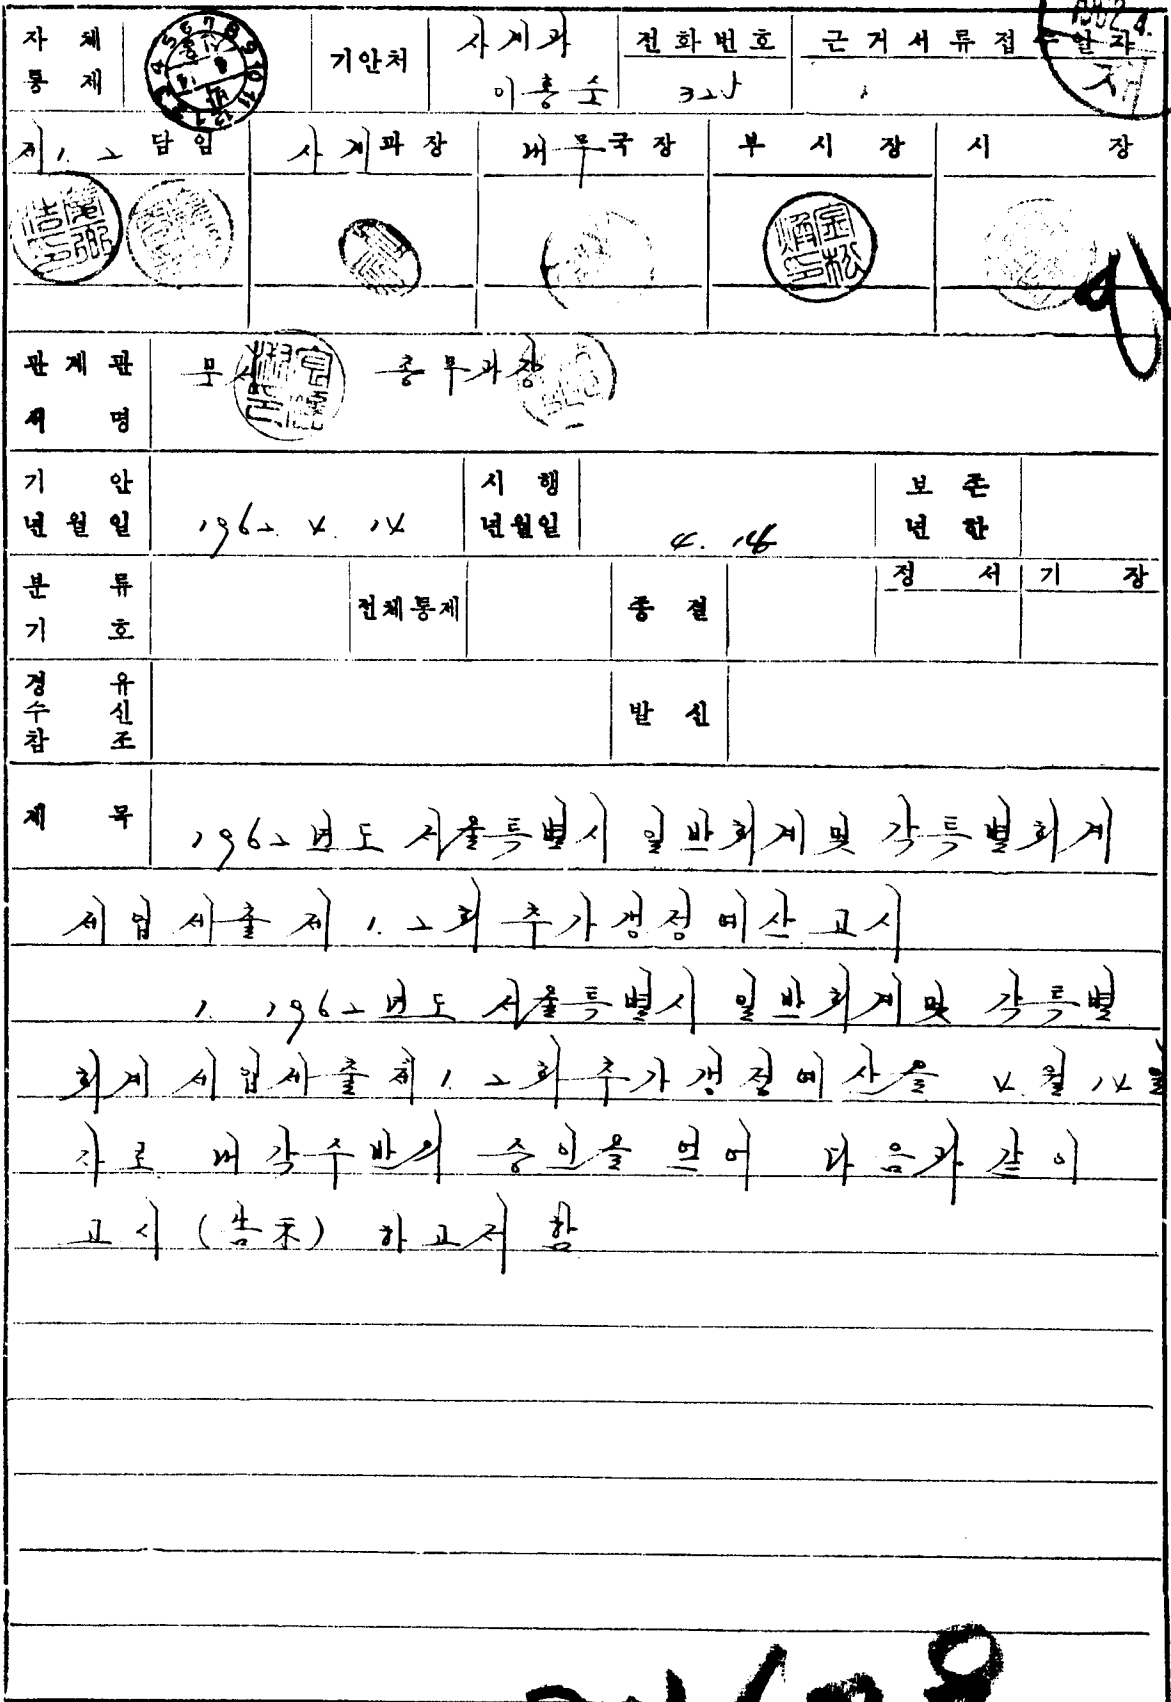 자체통제
기안처 사계과 이홍순
전화번호 325
근거서류접수일자
1962. 4.
제1.2담임
사계과장
내무국장
부시장
시장
관계관서명
문서 총무과장
기안년월일 1962. 4. 14
시행년월일 4. 14
보존년한
분류기호
전체통제
종결
정서
기장
경유
수신
참조
발신
제목 1962년도 서울특별시 일반회계및 각특별회계
세입세출 제1.2회 추가갱정예산 고시
1. 1962년도 서울특별시 일반회계및 각특별
회계 세입세출제1.2회추가갱정예산을 4월14일
자로 내각수반의 승인을 얻어 다음과 같이
고시(告示) 하고저 함